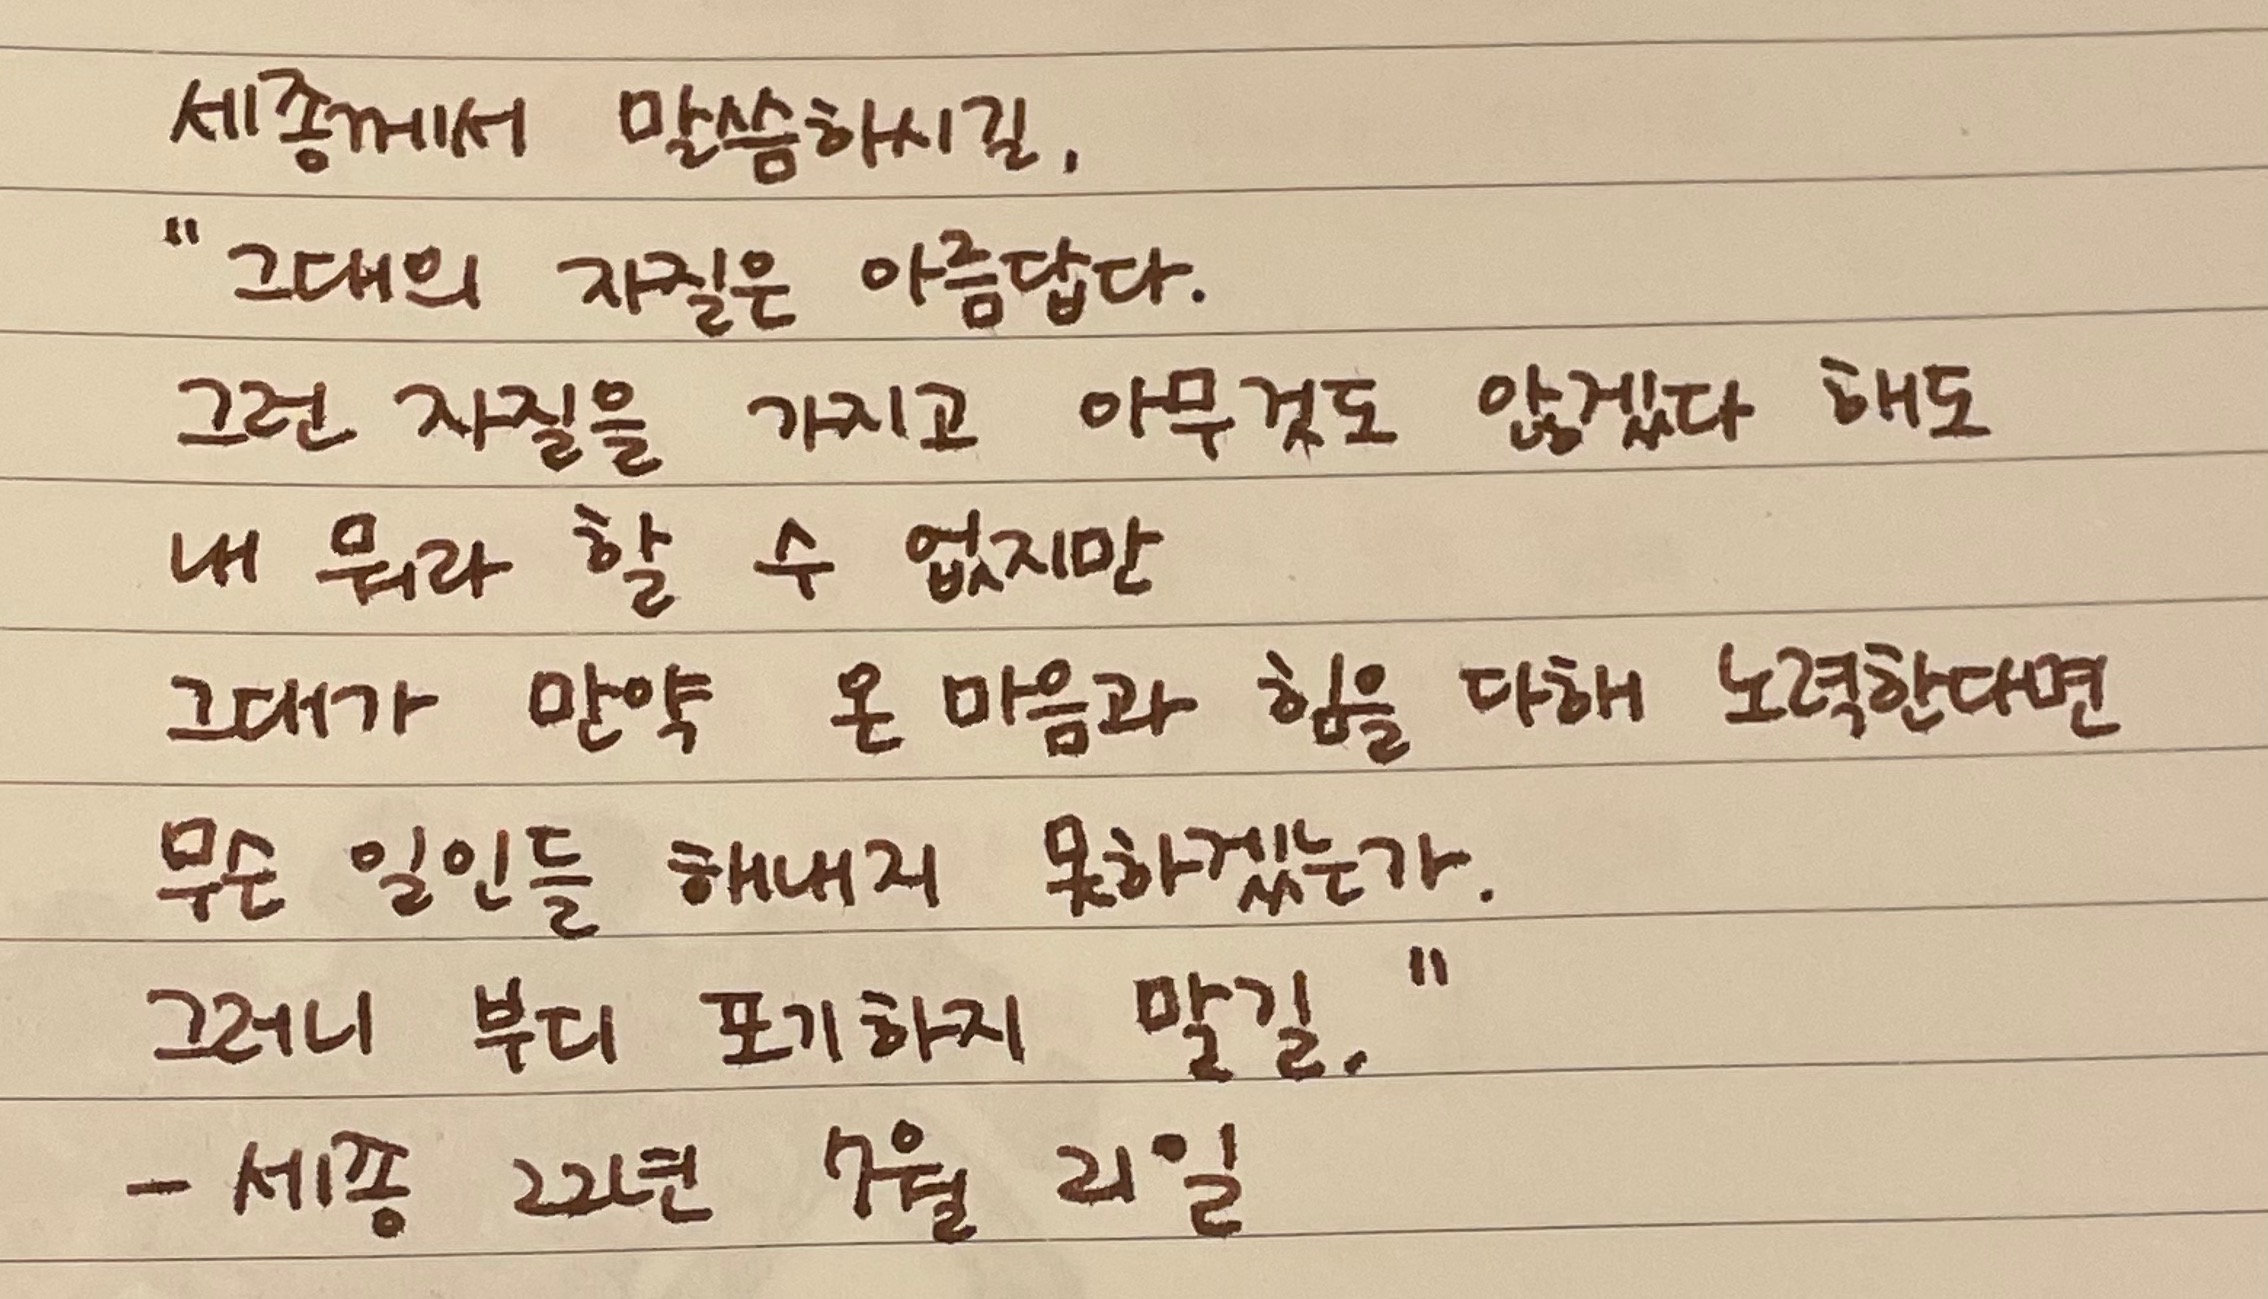 세종께서 말씀하시길,
"그대의 자질은 아름답다.
그런 자질을 가지고 아무것도 않겠다 해도
내 뭐라 할 수 없지만
그대가 만약 온 마음과 힘을 다해 노력한다면
무슨 일인들 해내지 못하겠는가.
그러니 부디 포기하지 말길."
- 세종 22년 7월 21일